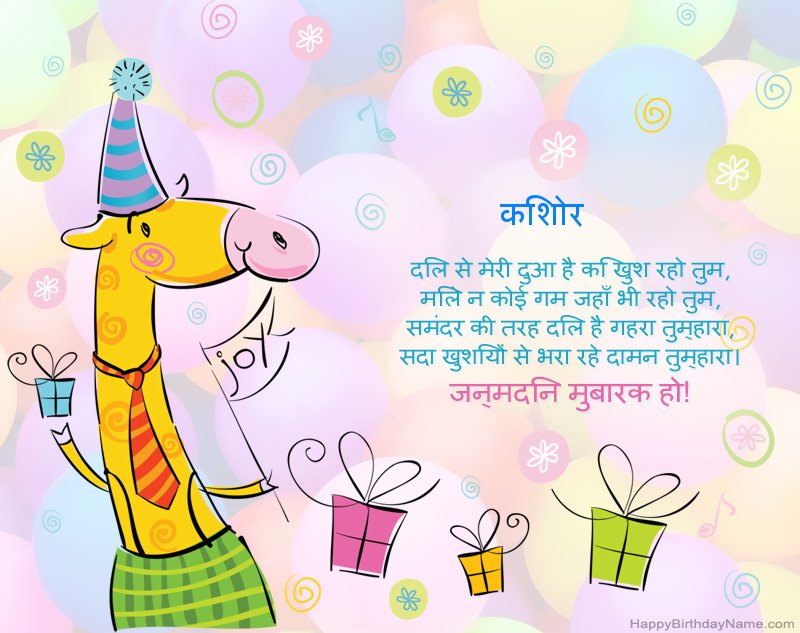 किशोर
दिल से मेरी दुआ है कि खुश रहो तुम,
मिले न कोई गम जहाँ भी रहो तुम,
समंदर की तरह दिल है गहरा तुम्हारा,
सदा खुशियों से भरा रहे दामन तुम्हारा।
जन्मदिन मुबारक हो!
joy
HappyBirthdayName.com